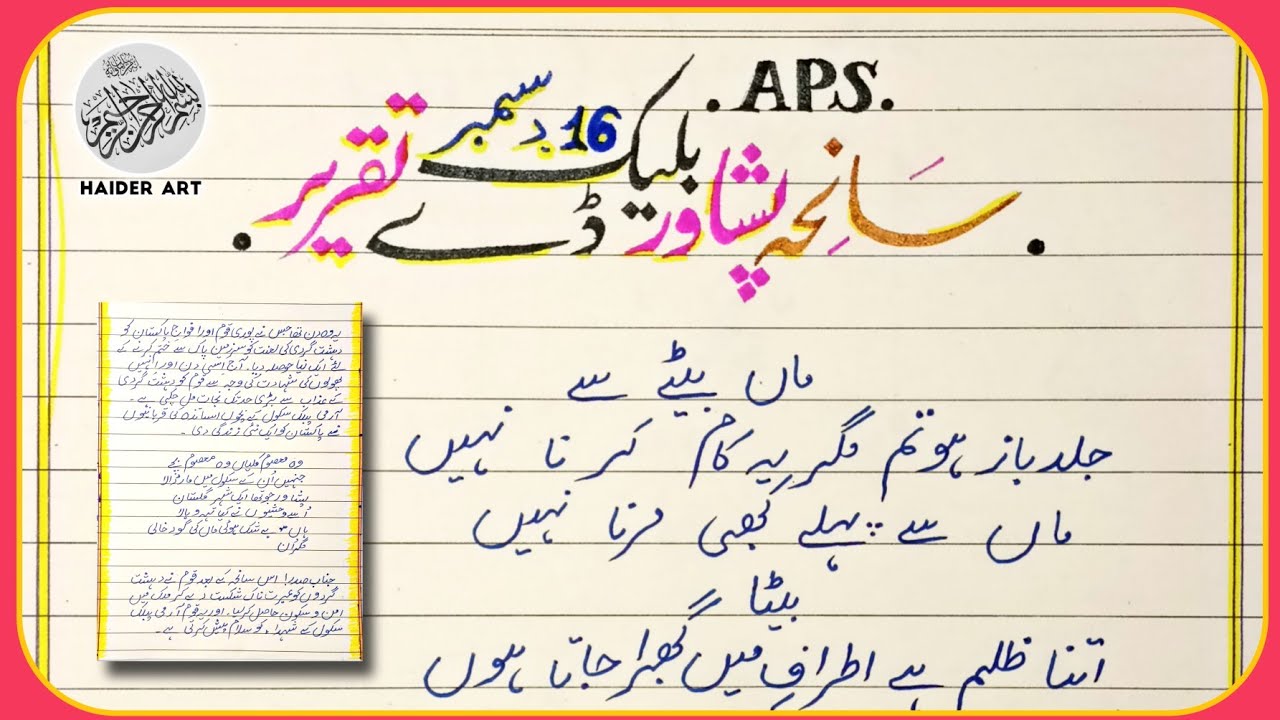 HAIDER ART
.APS.
16 دسمبر
بلیک ڈے
سانحہ پشاور
تقریر
ماں بیٹے سے
جلد باز ہو تم مگر یہ کام کرنا نہیں
ماں سے پہلے کبھی مرنا نہیں
بیٹا
اتنا ظلم ہے اطراف میں گھبرا جاتا ہوں
یہ وہ دن تھا جس نے پوری قوم اور افواج پاکستان کو
دہشت گردی کی لعنت کو سرزمین پاک سے ختم کرنے کے
لئے ایک نیا حوصلہ دیا۔ آج اسی دن اور انہیں
پھولوں کی شہادت کی وجہ سے قوم کو دہشت گردی
کے عذاب سے بڑی حد تک نجات مل چکی ہے۔
آرمی پبلک سکول کے بچوں اساتذہ کی قربانیوں
نے پاکستان کو ایک نئی زندگی دی۔
وہ معصوم کلیاں وہ معصوم بچے
جنہیں اُن کے سکول میں مار ڈالا
پشاور جو تھا ایک شہر گلستان
اُسے وحشیوں نے کیا تہہ و بالا
ہاں بے شک ہوئی ماں کی گود خالی
جناب صدر! اس سانحہ کے بعد قوم نے دہشت
گردوں کو عبرت ناک شکست دے کر ملک میں
امن و سکون حاصل کر لیا۔ اور یہ قوم آرمی پبلک
سکول کے شہداء کو سلام پیش کرتی ہے۔